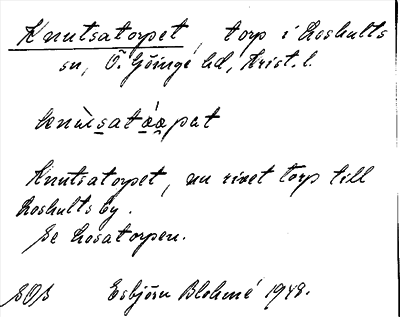 Knutsatorpet, torp i Loshults
sn, Ö. Göinge hd, Krist. l.
Knutsatorpet, nu rivet torp till
Loshults by.
Se Losatorpen.
Esbjörn Blohmé 1948.